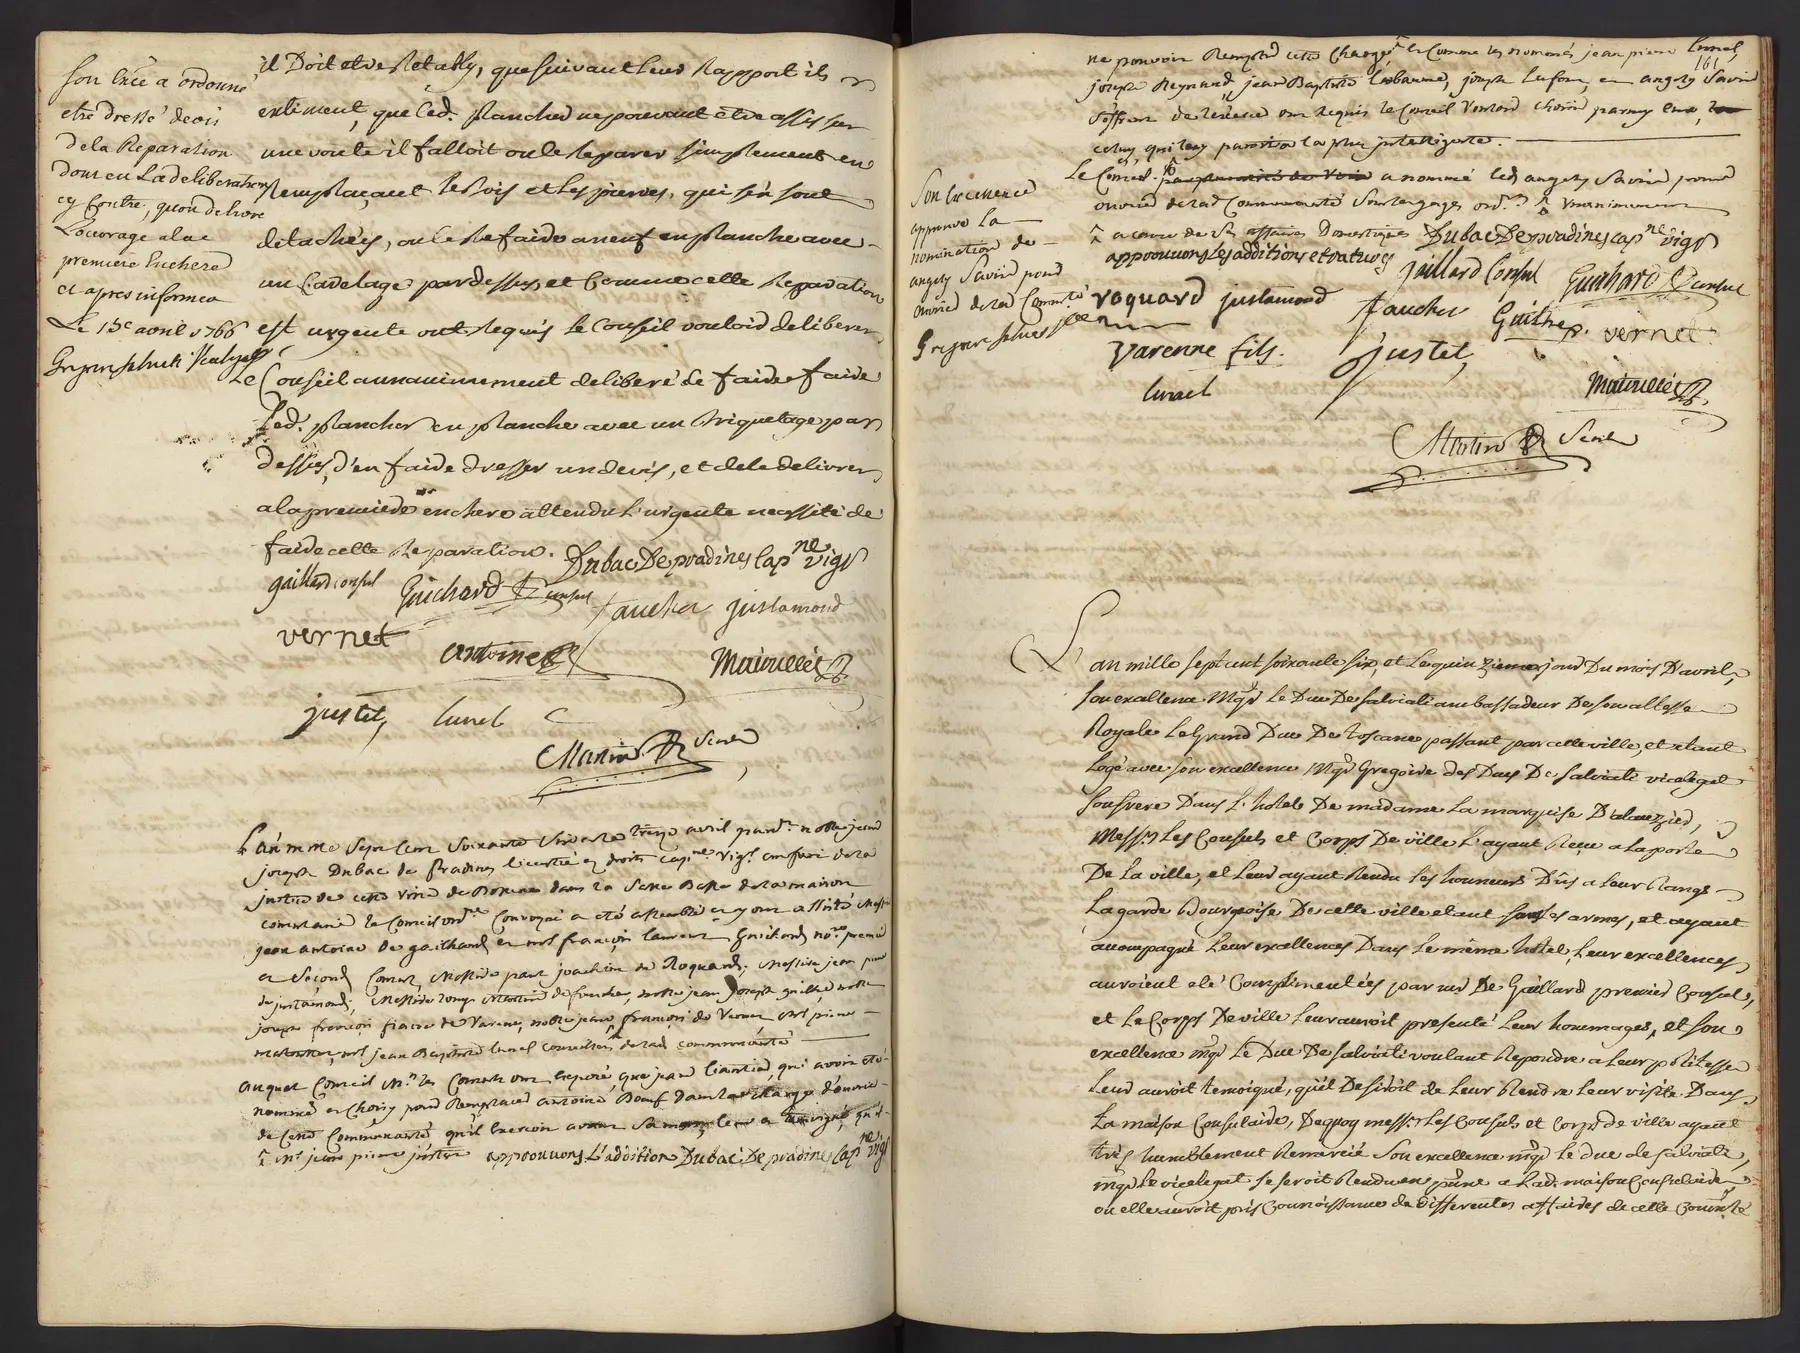 Son Exce a ordonné
etre dressé devis
de la Reparation
dont en La deliberation
cy Contre, qu'on delivre
L'ouvrage a la
premiere Enchere
et apres informera
Le 15e avril 1766
il Doit etre Retably, que suivant leur Rapport ils
estiment, que led. plancher ne pouvant etre assis sur
une voute il falloit ou le Reparer simplement en
Remplaçant les bois et les pierres, qui s'en sont
detachées, ou le Refaire a neuf en planche avec
un Cadelage par dessus, et Comme cette Reparation
est urgente ont Requis le Conseil vouloir deliberer
Le Conseil a unanimement deliberé de faire faire
Led. plancher en planche avec un briquetage par
dessus, d'en faire dresser un devis, et de le delivrer
a la premiere enchere attendu L'urgente necessité de
faire cette Reparation. Dubac De pradines Cap.ne vigr
gaillard consul Guichard Consul faucher justamond
vernet antoine Maioullés
justet, Lunel
Martin Secre
L'an mme sept cent soixante six et le treize avril pardt noble jean
joseph Dubac de Pradines licentié ez droits cap.ne vigr
justice de cette ville de Bollene dans la Salle Basse de la maison
consulaire le Conseil ordre Convoqué a eté assemblé
jean antoine de gailhard et mre françois laurent Guichard nore premier
et Second Consuls, Messire paul joachim de Roquard, Messire jean pierre
de justamond, Messire louis de faucher, noble jean joseph guilhe, noble
joseph françois de Varene, noble jean françois de Vernet, mre pierre
jean Baptiste lunel Conseillers de lad. communauté
auquel Conseil Mrs les Consuls ont exposé, que jean liautier, qui avoit eté
nommé et choisy pour Remplacer antoine Boeuf dans la charge d'ouvrier
de cette Communauté
mre jean pierre justet approuvons L'addition Dubac De pradines Cap.ne vigr
161
ne pouvoir Remplir cette Charge, et Comme les nommés jean pierre lunel,
joseph Reynaud, jean Baptiste Labaume, joseph Lafon, et angely Savin
s'offrent de l'exercer ont Requis le Conseil Vouloir choisir parmy eux,
celuy qui leur paroitra la plus intelligente.
Le Conseil a nommé led. angely Savin pour
ouvrier de lad. Communauté Sous les gages ord.res Unanimement
a cause de ses affaires Domestiques Dubac De pradines cap.ne vigr
approuvons les additions et ratures
Son Excellence
approuve la
nomination de
angely Savin pour
ouvrier de lad. Commté
gaillard Consul Guichard Consul
roquard justamond faucher Guilhe. vernet
Varenne fils. justet,
Lunel Maioullés
Martin Secre
L'an mille sept cent soixante six, et Le quinzieme jour Du mois D'avril,
son excellence Mgr Le Duc De Salviati ambassadeur De son altesse
Royale Le Grand Duc De Toscane passant par cette ville, et etant
Logé avec son excellence Mgr Gregoire des Ducs De Salviati vicelegat
son frere Dans L'hotel De madame La marquise D'alauzier,
Messrs Les Consuls et Corps De ville L'ayant Reçu a la porte
De La ville, et Leur ayant Rendu les honneurs Dûs a Leur Rang
La garde Bourgeoise De cette ville etant sous les armes, et ayant
accompagné Leurs excellences Dans le même hotel, Leurs excellences
auroient eté Complimentées par mr De Gaillard premier Consul,
et Le Corps De ville Leur auroit presenté Leurs hommages, et son
excellence mgr Le Duc De Salviati voulant Repondre a Leur politesse
Leur auroit temoigné, qu'il Desiroit de Leur Rendre Leur visite Dans
La maison Consulaire, De quoy messrs Les Consuls et Corps de ville ayant
très humblement Remercié Son excellence mgr le duc de Salviati,
mgr Le vicelegat se seroit Rendu en pnne a Lad. maison Consulaire
ou elle auroit pris Connoissance de differentes affaires de cette Commté